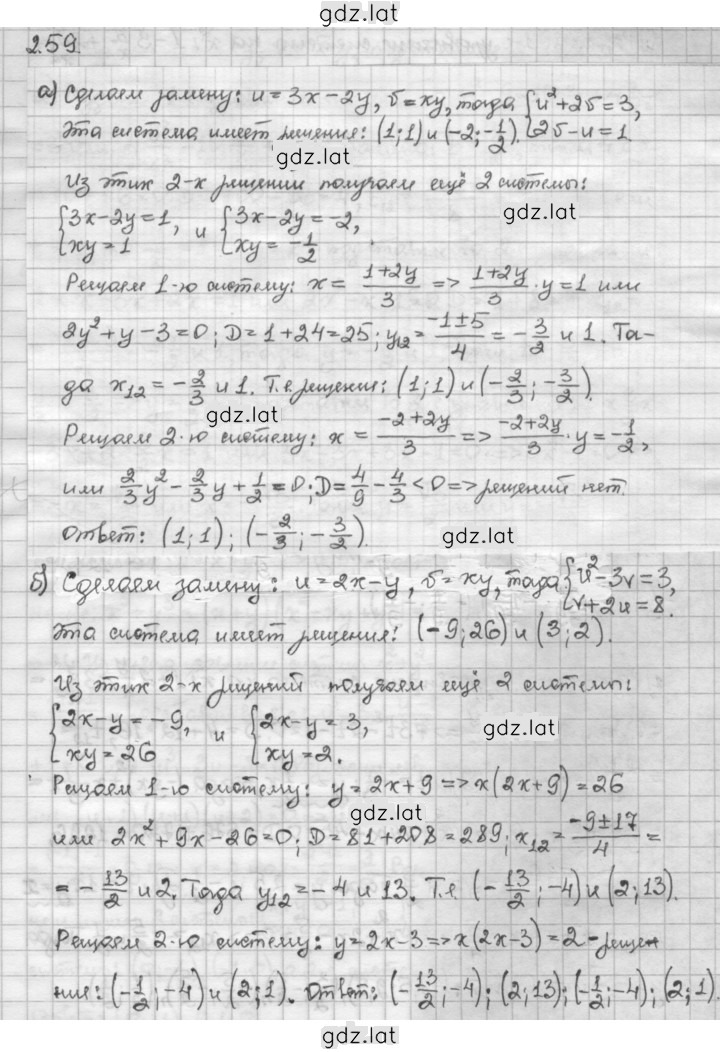 gdz.lat
2.59.
а) Сделаем замену: u = 3x − 2y, v = xy, тогда {u² + 2v = 3,
Эта система имеет решения: (1; 1) и (−2; −1/2). {2v − u = 1
gdz.lat
Из этих 2-х решений получаем ещё 2 системы:
{3x − 2y = 1, и {3x − 2y = −2, gdz.lat
{xy = 1 {xy = −1/2
Решаем 1-ю систему: x = (1+2y)/3 => (1+2y)/3 · y = 1 или
2y² + y − 3 = 0; D = 1 + 24 = 25; y₁₂ = (−1±5)/4 = −3/2 и 1. Та-
да x₁₂ = −2/3 и 1. Т.е. решения: (1; 1) и (−2/3; −3/2).
gdz.lat
Решаем 2-ю систему: x = (−2+2y)/3 => (−2+2y)/3 · y = −1/2,
или 2/3 y² − 2/3 y + 1/2 = 0; D = 4/9 − 4/3 < 0 => решений нет.
Ответ: (1; 1); (−2/3; −3/2). gdz.lat
б) Сделаем замену: u = 2x − y, v = xy, тогда {u² − 3v = 3,
{v + 2u = 8.
Эта система имеет решения: (−9; 26) и (3; 2).
Из этих 2-х решений получаем ещё 2 системы:
{2x − y = −9, и {2x − y = 3, gdz.lat
{xy = 26 {xy = 2.
Решаем 1-ю систему: y = 2x + 9 => x(2x + 9) = 26
gdz.lat
или 2x² + 9x − 26 = 0; D = 81 + 208 = 289; x₁₂ = (−9±17)/4 =
= −13/2 и 2. Тогда y₁₂ = −4 и 13. Т.е. (−13/2; −4) и (2; 13).
Решаем 2-ю систему: y = 2x − 3 => x(2x − 3) = 2 − решен
ния: (−1/2; −4) и (2; 1). Ответ: (−13/2; −4); (2; 13); (−1/2; −4); (2; 1).
gdz.lat